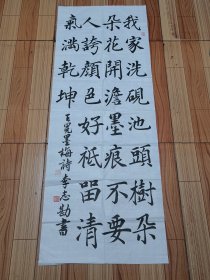 我家洗硯池頭樹朵
朵花開澹墨痕不要
人誇顏色好祗留清
氣滿乾坤
王冕墨梅詩 李志書